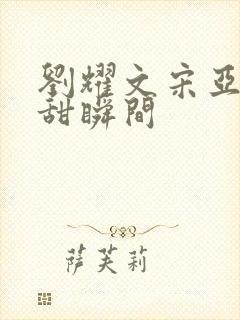 劉耀文宋亞
甜瞬間
萨芙莉